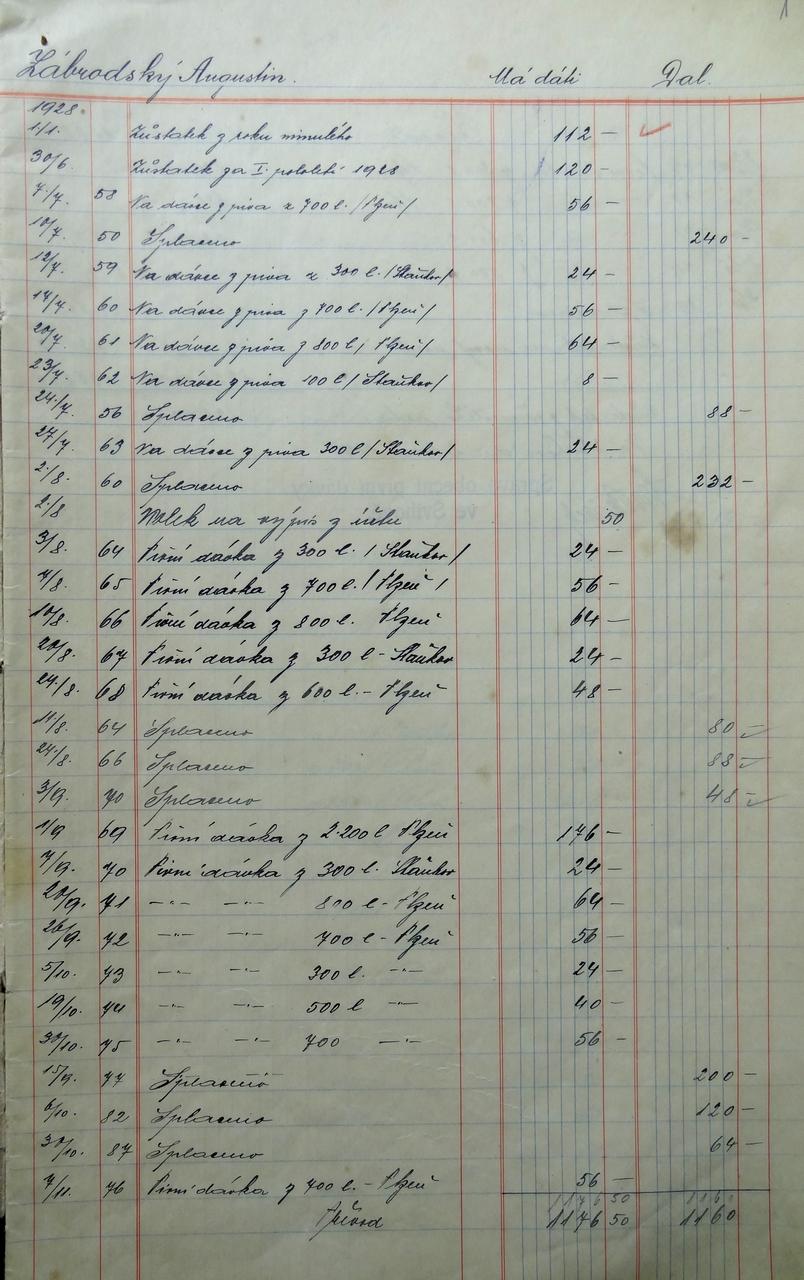 1
Zábrodský Augustin. Má dáti Dal.
1928.
1./1. Zůstatek z roku minulého 112 —
30/6. Zůstatek za I. pololetí 1928 120 —
7./7. 58 Na dávce z piva z 700 l. /Plzeň/ 56 —
10/7. 50 Splaceno 240 —
12/7. 59 Na dávce z piva z 300 l. /Staňkov/ 24 —
17/7. 60 Na dávce z piva z 700 l. /Plzeň/ 56 —
20/7. 61 Na dávce z piva z 800 l / Plzeň/ 64 —
23/7. 62 Na dávce z piva 100 l / Staňkov/ 8 —
24./7. 56 Splaceno 88 —
27/7. 63 Na dávce z piva 300 l / Staňkov/ 24 —
2./8. 60 Splaceno 232 —
2/8 Kolek na výpis z účtu 50
3/8. 64 Pivní dávka z 300 l. / Staňkov/ 24 —
7/8. 65 Pivní dávka z 700 l. / Plzeň / 56 —
10/8. 66 Pivní dávka z 800 l. Plzeň 64 —
20/8. 67 Pivní dávka z 300 l - Staňkov 24 —
24./8. 68 Pivní dávka z 600 l. - Plzeň 48 —
11/8. 64 Splaceno 80 —
24./8. 66 Splaceno 88 —
3/9. 70 Splaceno 48 —
1/9 69 Pivní dávka z 2.200 l Plzeň 176 —
7/9. 70 Pivní dávka z 300 l. Staňkov 24 —
20/9. 71 —"— —"— 800 l - Plzeň 64 —
26/9. 72 —"— —"— 700 l - Plzeň 56 —
5/10. 73 —"— —"— 300 l. —"— 24 —
19/10. 74 —"— —"— 500 l —"— 40 —
30/10. 75 —"— —"— 700 —"— 56 —
15/9. 77 Splaceno 200 —
6/10. 82 Splaceno 120 —
30/10. 87 Splaceno 64 —
7/11. 76 Pivní dávka z 700 l. - Plzeň 56 —
1176 50 116
Převod 1176 50 1160